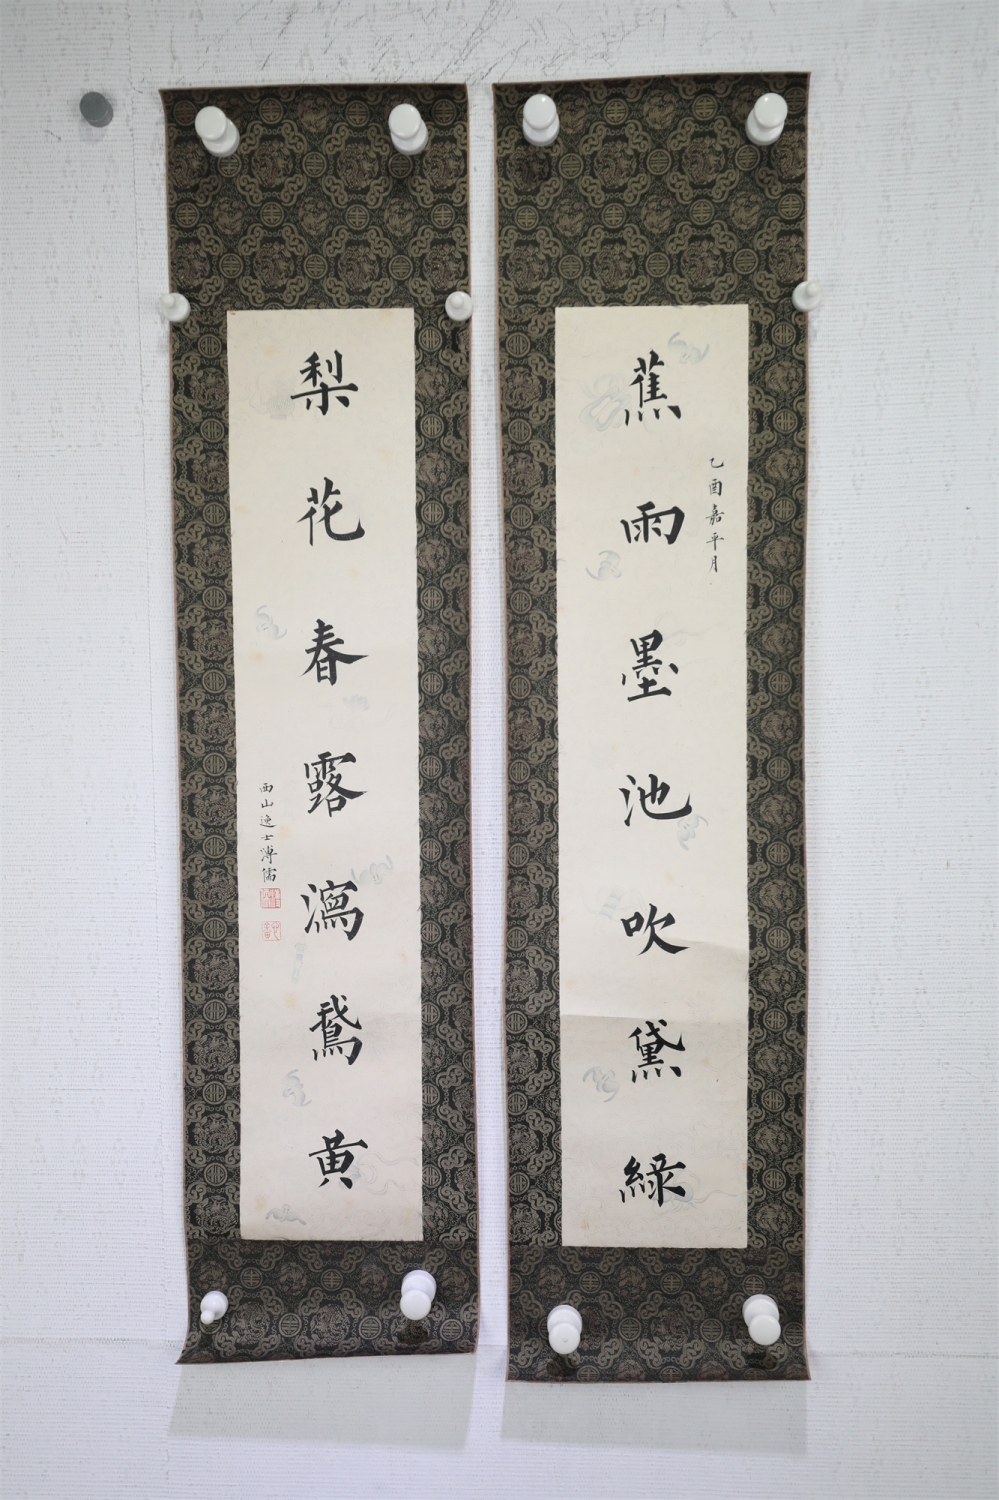 乙酉嘉平月
蕉雨墨池吹黛綠
梨花春露瀉鵞黄
西山逸士溥儒